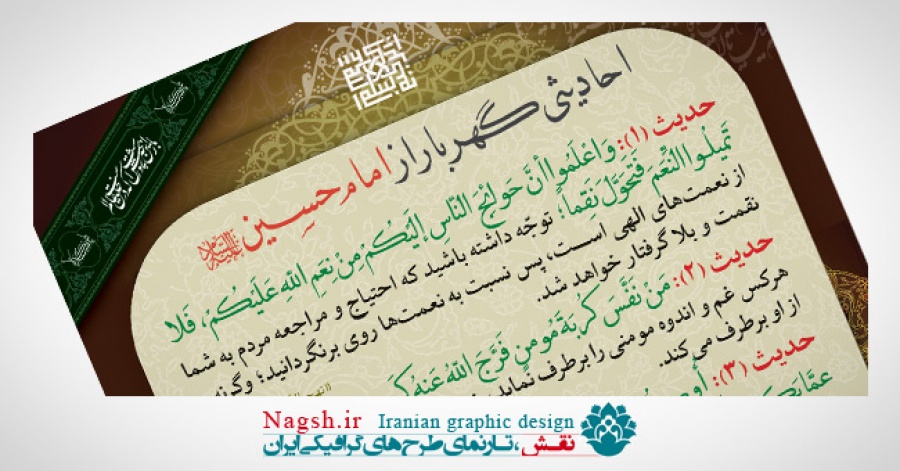 احادیثی گهربار از امام حسین علیه‌السلام
حدیث (۱): وَاعْلَمُوا أَنَّ حَوائِجَ النّاسِ إِلَيْكُمْ مِنْ نِعَمِ اللّهِ عَلَيْكُمْ، فَلا
تَمیلُوا النِّعَمَ فَتَحَوَّلَ نِقَماً؛ توجّه داشته باشید که احتیاج و مراجعه مردم به شما
از نعمت‌های الهی است، پس نسبت به نعمت‌ها روی برنگردانید؛ وگرنه
نقمت و بلا گرفتار خواهد شد.
حدیث (۲): مَنْ نَفَّسَ كُرْبَةَ مُومِنٍ فَرَّجَ اللّهُ عَنْهُ
هرکس غم و اندوه مومنی را برطرف نماید،
از او برطرف می‌کند.
حدیث (۳):
Nagsh.ir Iranian graphic design
نقش، تارنمای طرح‌های گرافیکی ایران